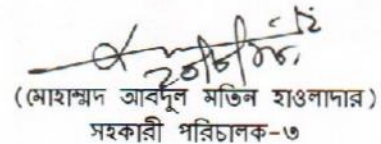 (মোহাম্মদ আবদুল মতিন হাওলাদার)
সহকারী পরিচালক-৭